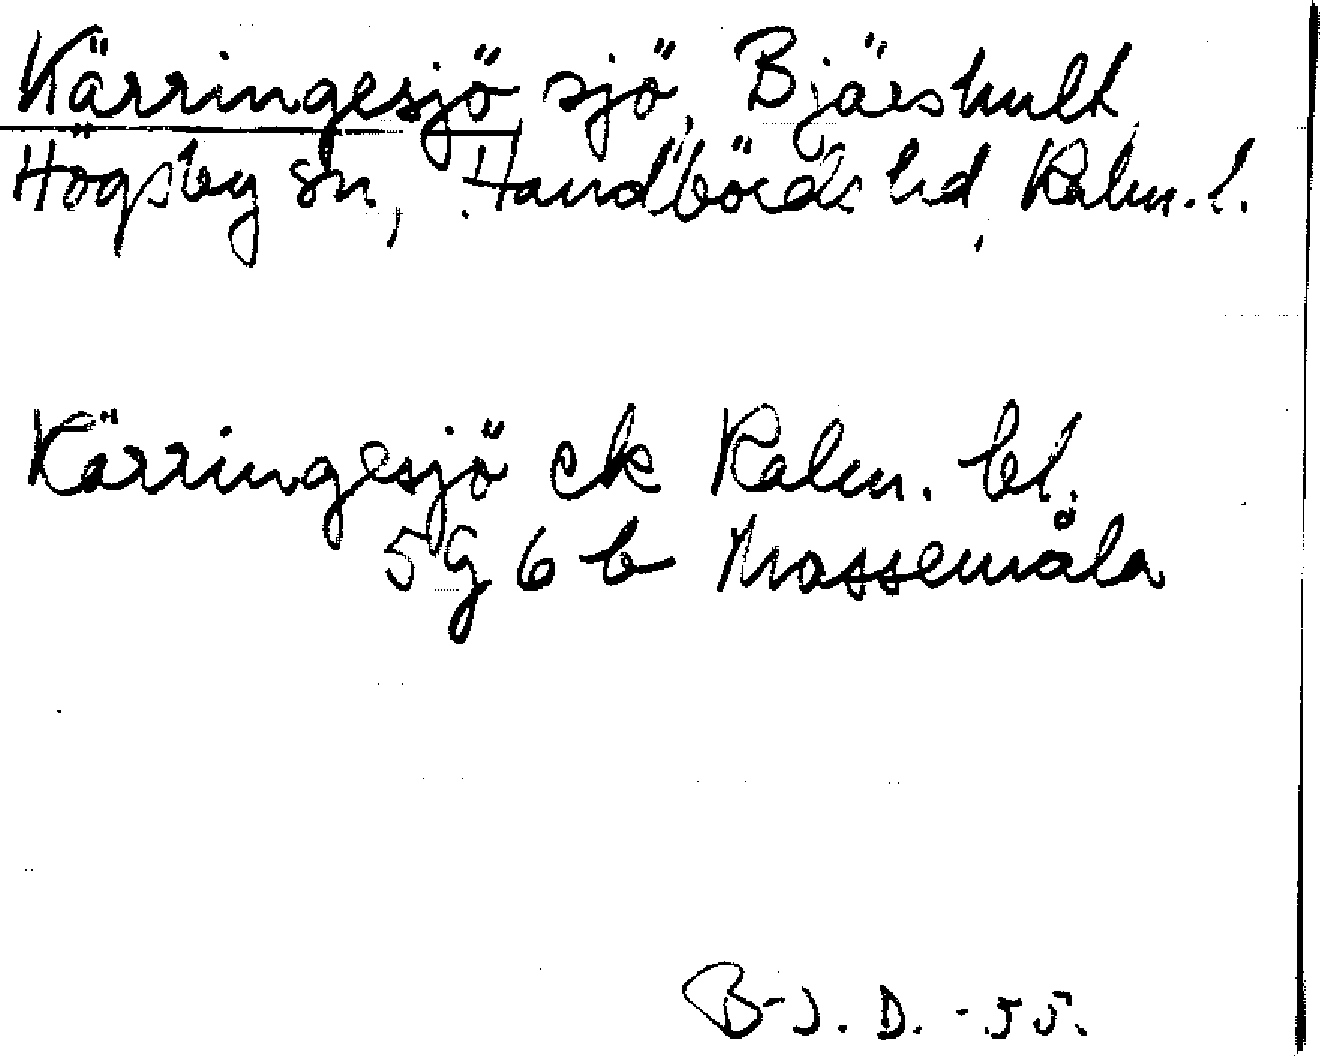 Kärringesjö sjö, Bjärshult,
Högsby sn, Handbörds hd, Kalm. l.
Kärringesjö ek Kalm. bl.
5G 6 b Mossemåla
B-J. D. -55.